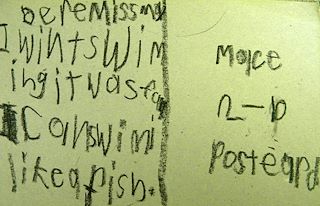 DereMissmay
I wintswim
ingitwasfan
I Canswim
likeafish.
Mace
n-p
Postcard